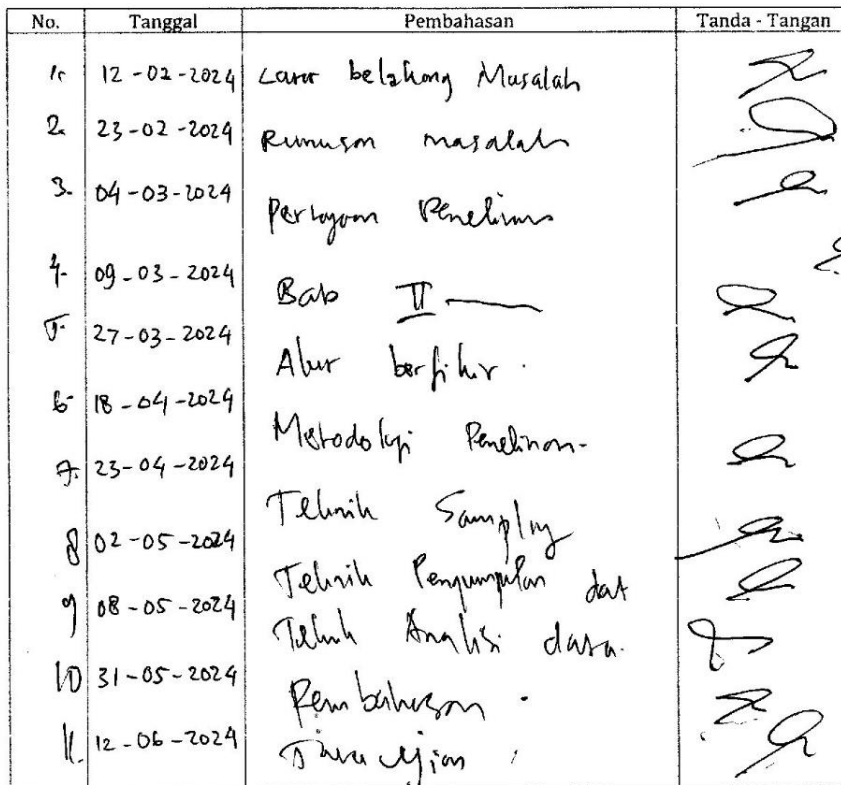 No. Tanggal Pembahasan Tanda - Tangan
1. 12-02-2024 Latar belakang Masalah
2. 23-02-2024 Rumusan masalah
3. 04-03-2024 Pertanyaan Penelitian
4. 09-03-2024 Bab II
5. 27-03-2024 Alur berfikir.
6. 18-04-2024 Metodologi Penelitian-
7. 23-04-2024 Teknik Sampling
8 02-05-2024 Teknik Pengumpulan dat
9 08-05-2024 Teknik Analisi data.
10 31-05-2024 Pembahasan.
11. 12-06-2024 ujian